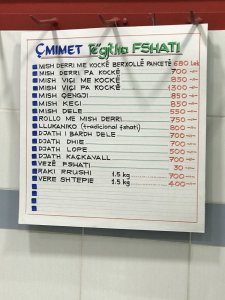 ÇMIMET Të gjitha FSHATI
MISH DERRI ME KOCKË BERXOLLË PANCETË 680 lek
MISH DERRI PA KOCKË 700
MISH VIÇI ME KOCKË 850
MISH VIÇI PA KOCKË 1300
MISH QENGJI 850
MISH KECI 850
MISH DELE 550
ROLLO ME MISH DERRI 750
LLUKANIKO (tradicional fshati) 800
DJATH I BARDH DELE 700
DJATH DHIE 700
DJATH LOPE 500
DJATH KAÇKAVALL 700
VEZË FSHATI 30
RAKI RRUSHI 1.5 kg 700
VERË SHTEPIE 1.5 kg 400